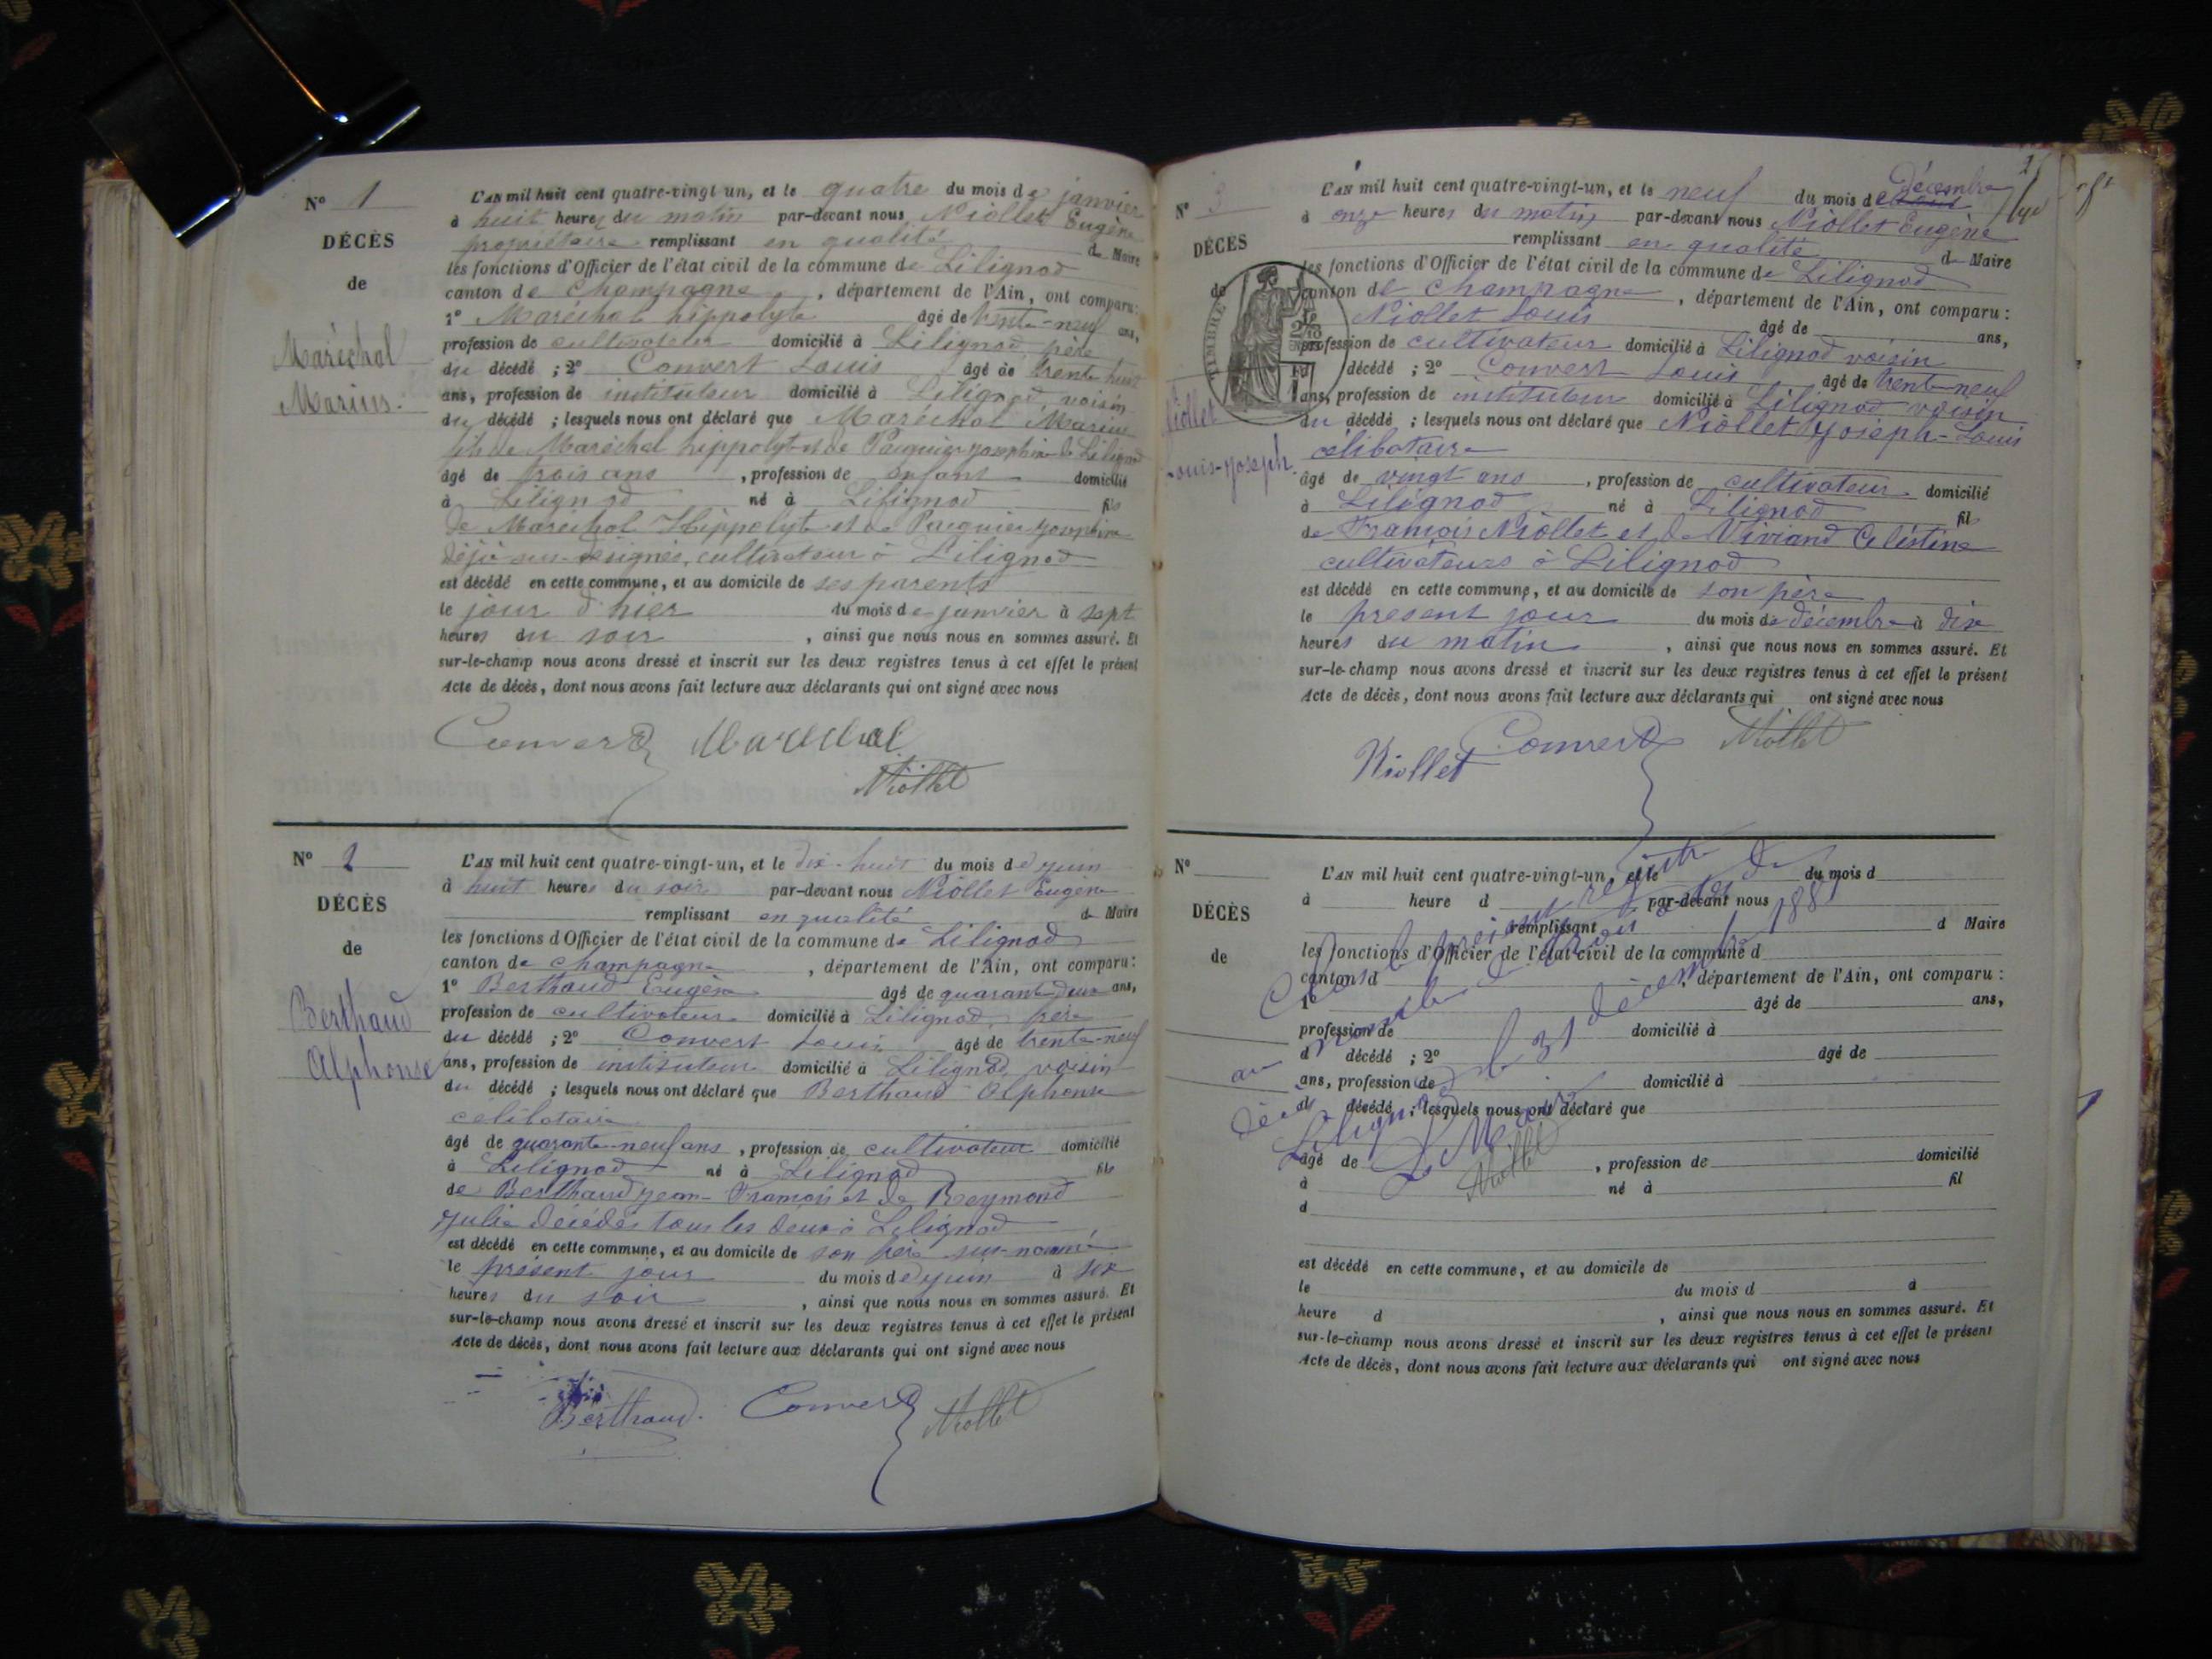 N° 1
DÉCÈS
de
Maréchal
Marius.
L'AN mil huit cent quatre-vingt un, et le quatre du mois de janvier
à huit heures du matin par-devant nous Niollet Eugène
propriétaire remplissant en qualité de Maire
les fonctions d'Officier de l'état civil de la commune de Lilignod
canton de Champagne, département de l'Ain, ont comparu:
1° Maréchal hippolyte âgé de trente-neuf ans,
profession de cultivateur domicilié à Lilignod, père
du décédé ; 2° Convert Louis âgé de trente huit
ans, profession de instituteur domicilié à Lilignod, voisin
du décédé ; lesquels nous ont déclaré que Maréchal Marius
fils de Maréchal hippolyte et de Paquier Josephine de Lilignod
âgé de trois ans, profession de enfant domicilié
à Lilignod né à Lilignod fils
de Maréchal Hippolyte et de Paquier Josephine
déjà sus-désignés, cultivateur à Lilignod
est décédé en cette commune, et au domicile de ses parents
le jour d'hier du mois de janvier à sept
heures du soir, ainsi que nous nous en sommes assuré. Et
sur-le-champ nous avons dressé et inscrit sur les deux registres tenus à cet effet le présent
Acte de décès, dont nous avons fait lecture aux déclarants qui ont signé avec nous
Convert Marechal
Niollet
N° 2
DÉCÈS
de
Berthaud
Alphonse
L'AN mil huit cent quatre-vingt-un, et le dix-huit du mois de juin
à huit heures du soir par-devant nous Niollet Eugène
remplissant en qualité de Maire
les fonctions d'Officier de l'état civil de la commune de Lilignod
canton de Champagne, département de l'Ain, ont comparu:
1° Berthaud Eugène âgé de quarante deux ans,
profession de cultivateur domicilié à Lilignod, frère
du décédé ; 2° Convert Louis âgé de trente-neuf
ans, profession de instituteur domicilié à Lilignod, voisin
du décédé ; lesquels nous ont déclaré que Berthaud Alphonse
celibataire
âgé de quarante-neuf ans, profession de cultivateur domicilié
à Lilignod né à Lilignod fils
de Berthaud Jean-François et de Reymond
Julie décédés tous les deux à Lilignod
est décédé en cette commune, et au domicile de son frère sus-nommé
le présent jour du mois de juin à six
heures du soir, ainsi que nous nous en sommes assuré. Et
sur-le-champ nous avons dressé et inscrit sur les deux registres tenus à cet effet le présent
Acte de décès, dont nous avons fait lecture aux déclarants qui ont signé avec nous
Berthaud. Convert Niollet
N° 3
DÉCÈS
de
Niollet
Louis-Joseph.
TIMBRE
L'AN mil huit cent quatre-vingt-un, et le neuf du mois de Décembre
à onze heures du matin par-devant nous Niollet Eugène
remplissant en qualité de Maire
les fonctions d'Officier de l'état civil de la commune de Lilignod
canton de Champagne, département de l'Ain, ont comparu :
Niollet Louis âgé de ans,
profession de cultivateur domicilié à Lilignod voisin
décédé ; 2° Convert Louis âgé de trente-neuf
ans, profession de instituteur domicilié à Lilignod voisin
du décédé ; lesquels nous ont déclaré que Niollet Joseph-Louis
célibataire
âgé de vingt ans, profession de cultivateur domicilié
à Lilignod né à Lilignod fils
de François Niollet et de Viviand Célestine
cultivateurs à Lilignod
est décédé en cette commune, et au domicile de son père
le present jour du mois de décembre à dix
heures du matin, ainsi que nous nous en sommes assuré. Et
sur-le-champ nous avons dressé et inscrit sur les deux registres tenus à cet effet le présent
Acte de décès, dont nous avons fait lecture aux déclarants qui ont signé avec nous
Niollet Convert Niollet
N°
DÉCÈS
de
L'AN mil huit cent quatre-vingt-un, et le du mois d
à heure d par-devant nous
remplissant d Maire
les fonctions d'Officier de l'état civil de la commune d
canton d, département de l'Ain, ont comparu :
1° âgé de ans,
profession de domicilié à
d décédé ; 2° âgé de
ans, profession de domicilié à
d décédé ; lesquels nous ont déclaré que
âgé de, profession de domicilié
à né à fil
d
est décédé en cette commune, et au domicile de
le du mois d à
heure d, ainsi que nous nous en sommes assuré. Et
sur-le-champ nous avons dressé et inscrit sur les deux registres tenus à cet effet le présent
Acte de décès, dont nous avons fait lecture aux déclarants qui ont signé avec nous
Clos le présent registre
au nombre de trois actes de
décès
Lilignod le 31 décembre 1881
Le Maire
Niollet